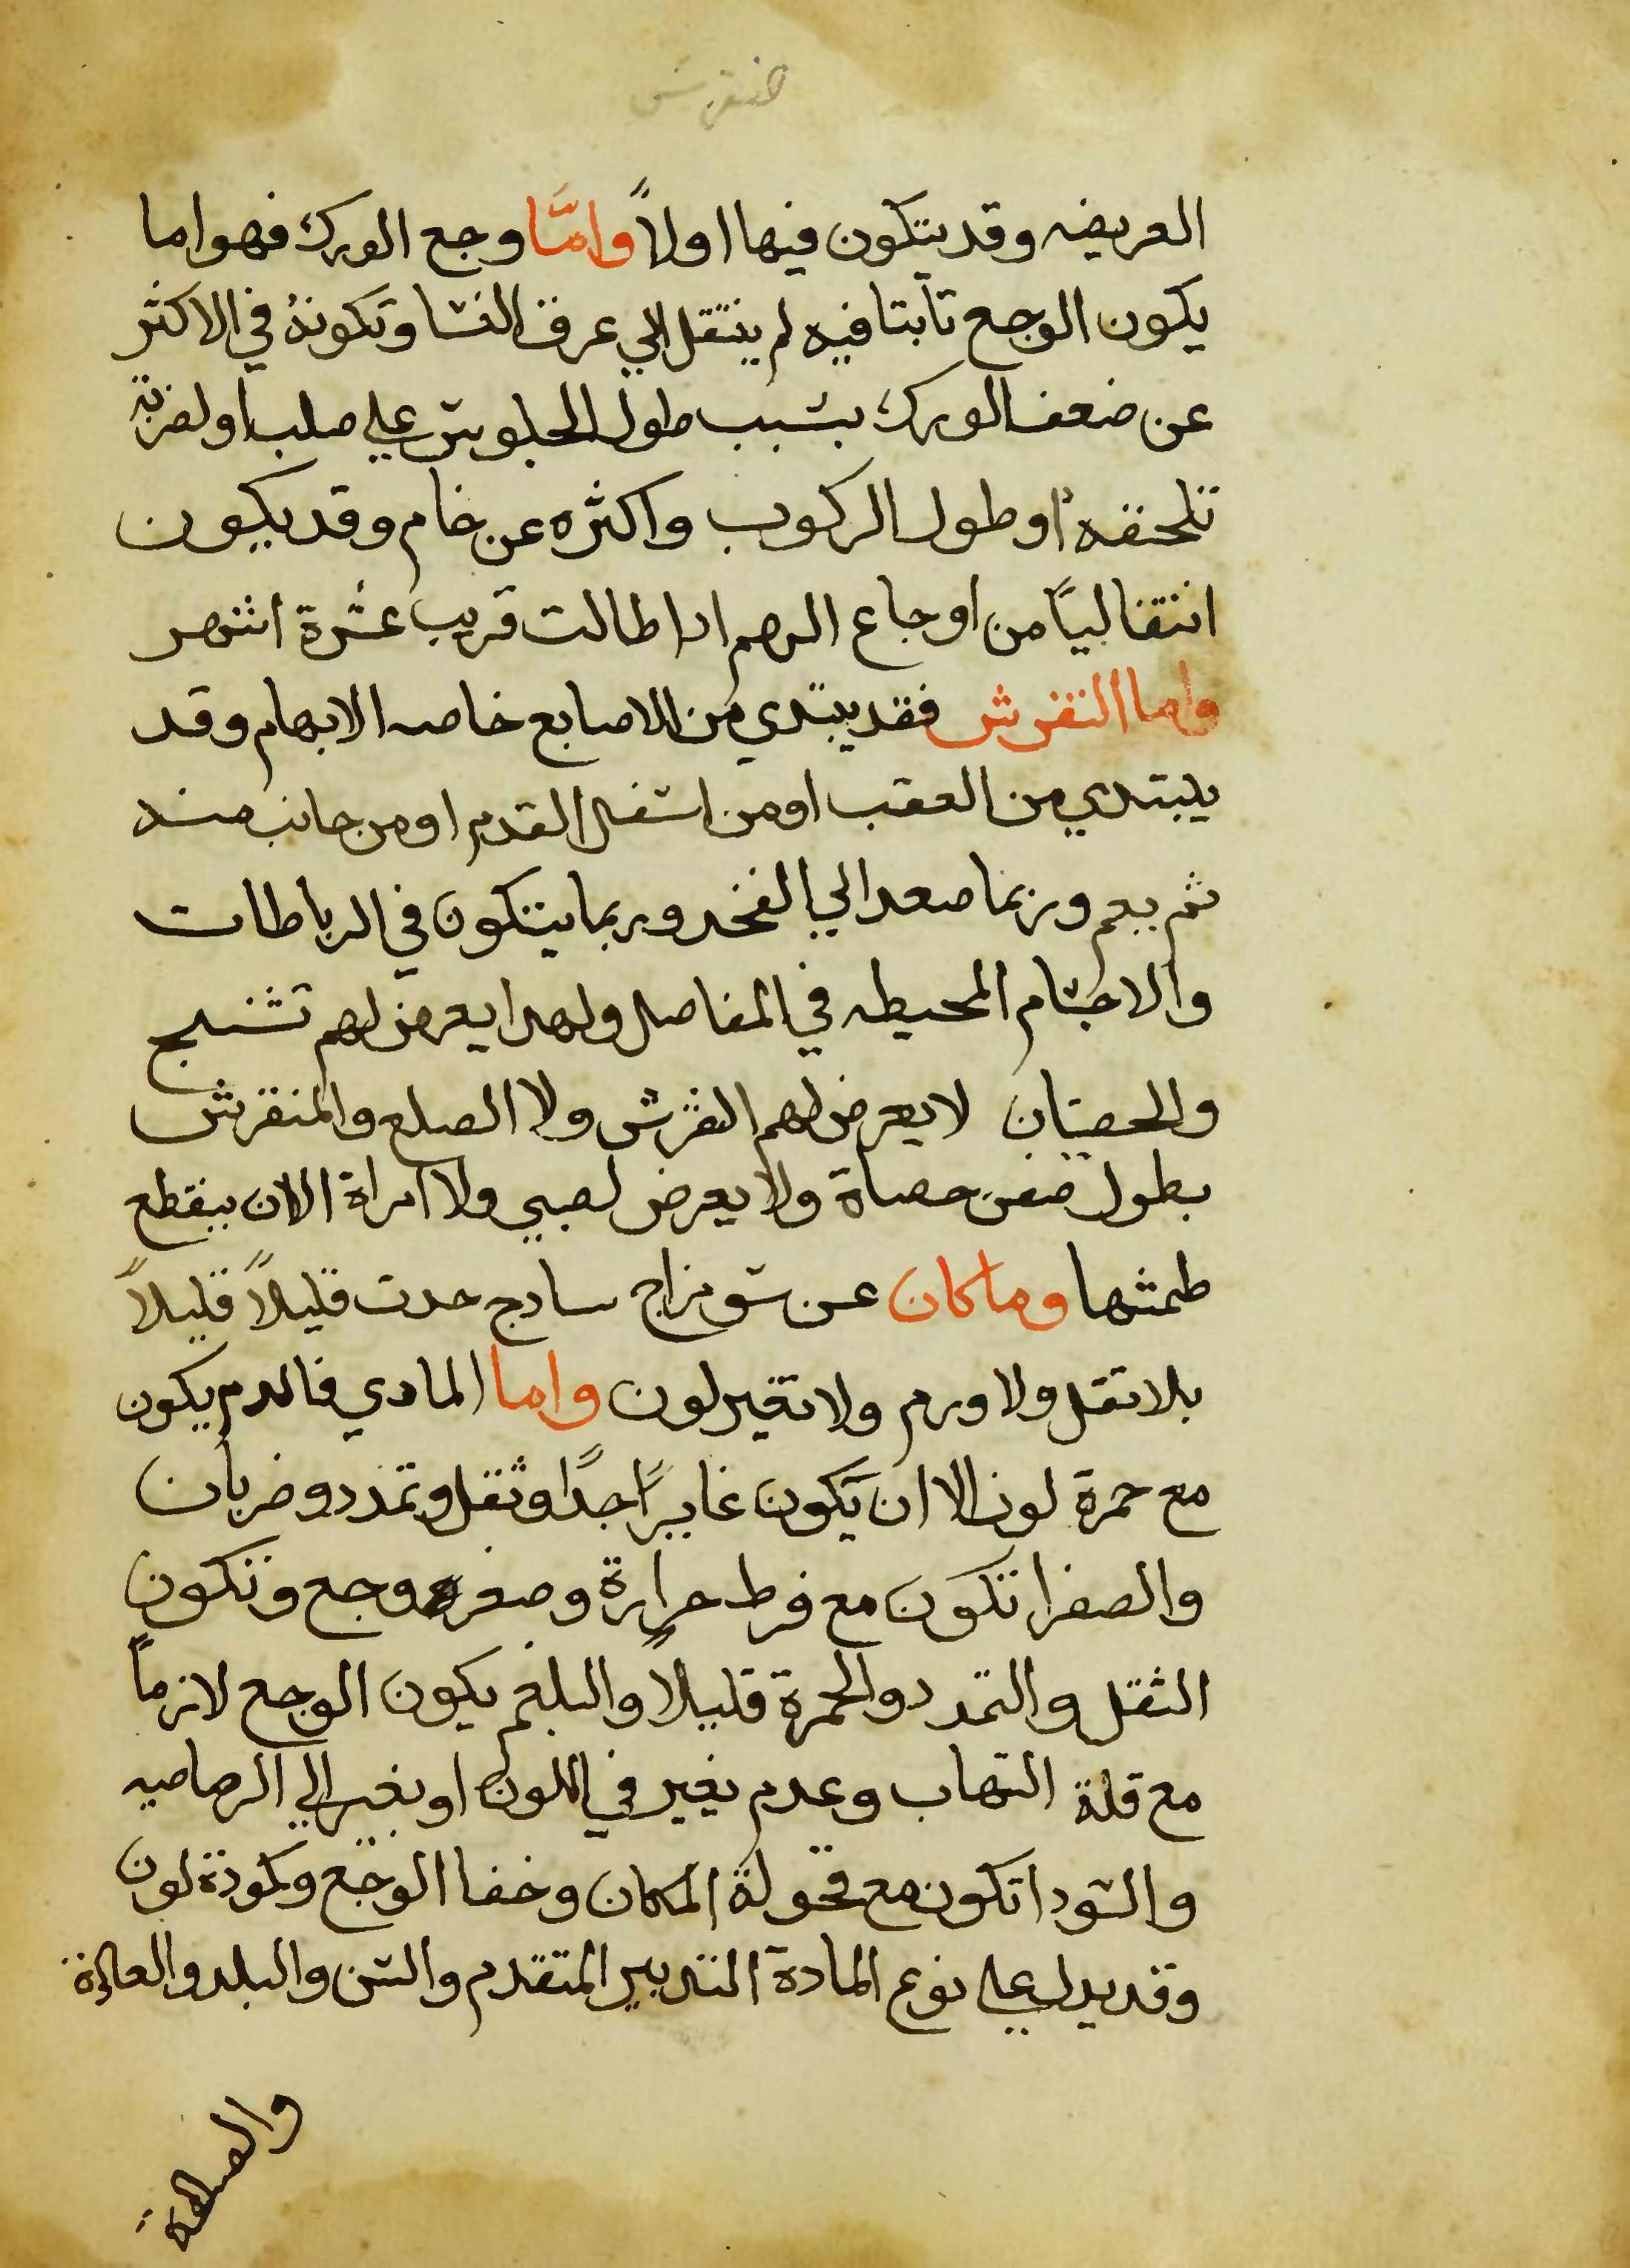 العريضه وقد يتكون فيها اولاً وامَّا وجع الورك فهو اما
يكون الوجع تابتا فيه لم ينتقل الي عرق النسا وتكونهُ في الاكثر
عن ضعف الورك بسبب طول الجلوس علي صلب او لضربة
تلحقه او طول الركوب واكثره عن خام وقد يكون
انتقالياً من اوجاع الرحم ادا طالت قريب عشرة اشهر
واما النقرس فقد يبتدي من الاصابع خاصه الابهام وقد
يبتدي من العقب او من اسفل القدم او من جانب منه
ثم يعم وربما صعد الي الفخد وربما يتكون في الرباطات
والاجسام المحيطه في المفاصل ولهدا يعرض لهم تشنج
والخصيان لا يعرض لهم النقرس ولا الصلع والمنقرس
يطول صفن خصاة ولا يعرض لصبي ولا امراة الا ان ينقطع
طمثها وما كان عن سو مزاج سادج حدت قليلاً قليلاً
بلا تقل ولا ورم ولا تغير لون واما المادي فالدم يكون
مع حمرة لون الا ان يكون غايراً جداً وثقل وتمدد وضربان
والصفرا تكون مع فرط حرارة وصفرة وجع وتكون
الثقل والتمدد والحمرة قليلاً والبلغم يكون الوجع لازماً
مع قلة التهاب وعدم تغير في اللون او تغير الي الرصاصيه
والسودا تكون مع قحولة المكان وخفا الوجع وكمودة لون
وقد يدل علي نوع المادة التدبير المتقدم والسن والبلد والعادة